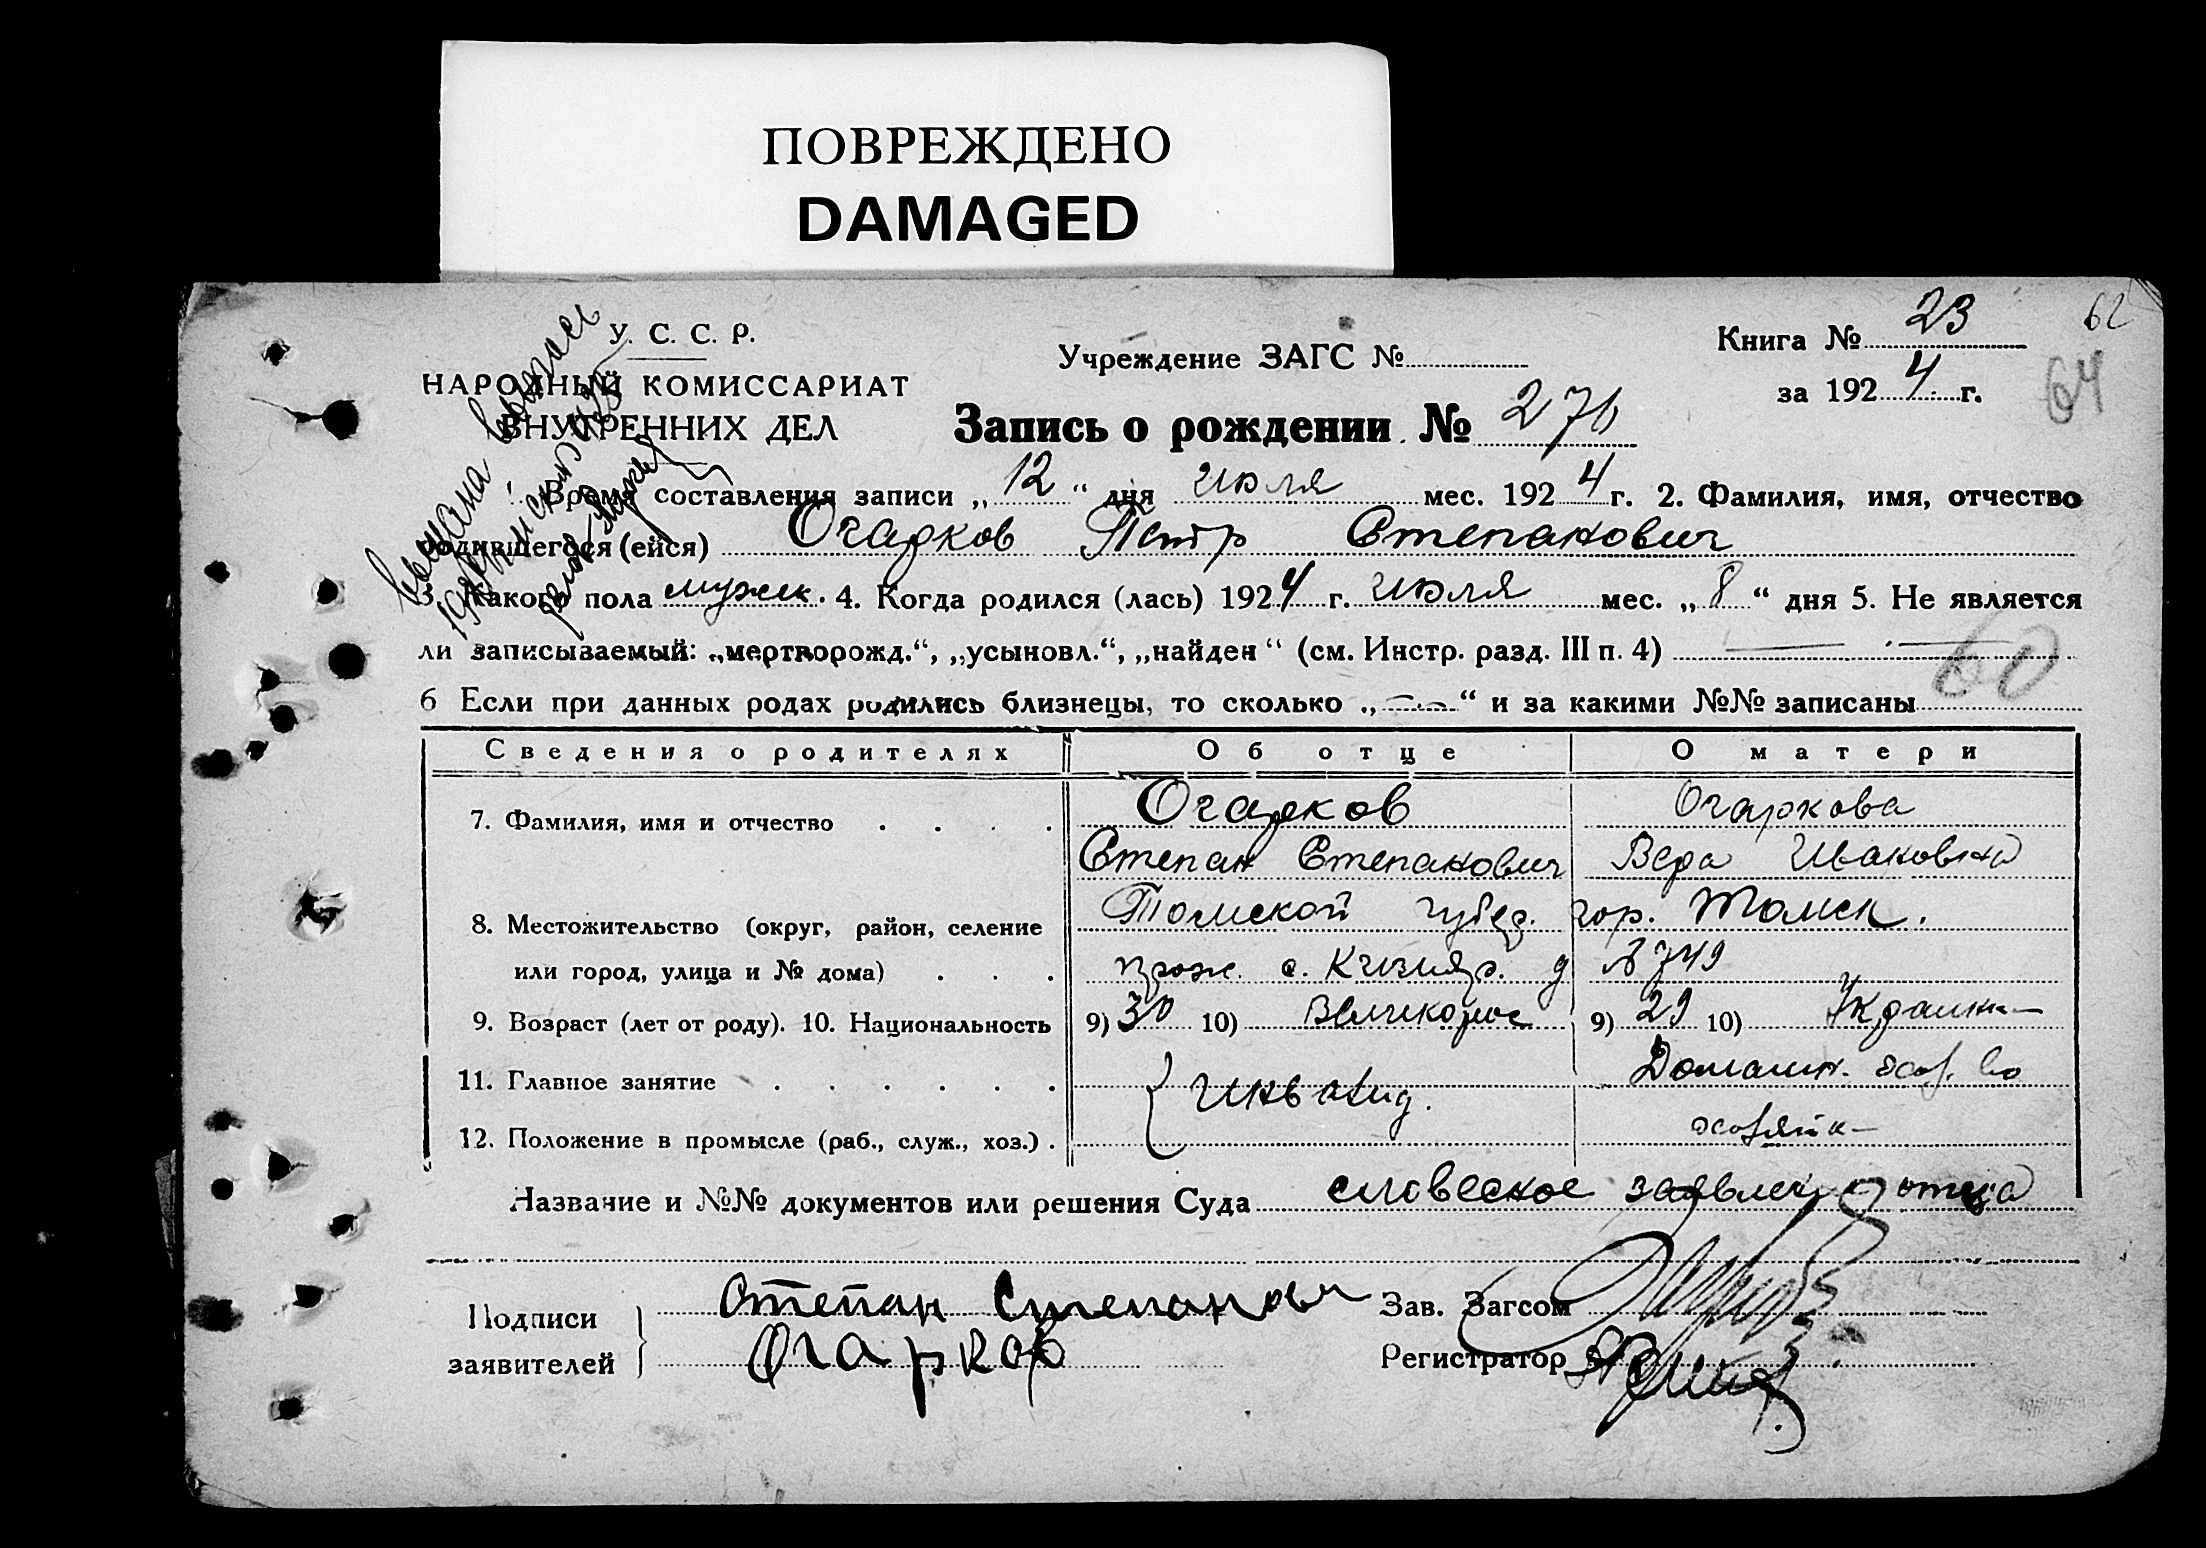 ПОВРЕЖДЕНО
DAMAGED
У. С. С. Р.
НАРОДНЫЙ КОМИССАРИАТ
ВНУТРЕННИХ ДЕЛ
Учреждение ЗАГС №
Книга № 23
62
за 1924 г.
64
Запись о рождении № 276
Выдана выпись
1. Время составления записи „12“ дня июля мес. 1924 г. 2. Фамилия, имя, отчество
родившегося (ейся) Огарков Петр Степанович
3. Какого пола мужск. 4. Когда родился (лась) 1924 г. июля мес. „8“ дня 5. Не является
ли записываемый: „мертворожд.“, „усыновл.“, „найден“ (см. Инстр. разд. III п. 4) —
60
6 Если при данных родах родились близнецы, то сколько „—“ и за какими №№ записаны
Сведения о родителях Об отце О матери
7. Фамилия, имя и отчество . . . . Огарков Огаркова
Степан Степанович Вера Ивановна
8. Местожительство (округ, район, селение Томской губер. гор. Томск.
или город, улица и № дома) . . . прож. с. д № 749
9. Возраст (лет от роду). 10. Национальность 9) 30 10) Великорос 9) 29 10) Украинк
11. Главное занятие . . . . . . Инвалид. Домашн. хоз. во
12. Положение в промысле (раб., служ., хоз.) . хозяйк
Название и №№ документов или решения Суда словесное заявлен отца
Подписи Степан Степанович Зав. Загсом
заявителей Огарков Регистратор